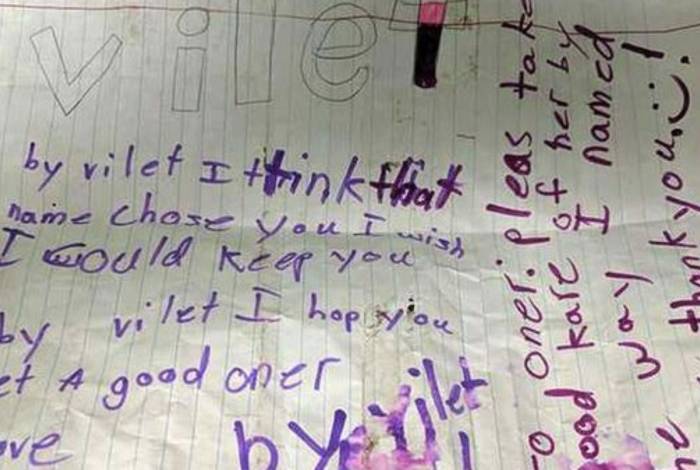 vilet
by vilet I think that
name chose you I wish
I would keep you
by vilet I hop you
et A good oner
ove
by vilet
o oner: pleas take
ood kare of her by
way I named
thnk you.